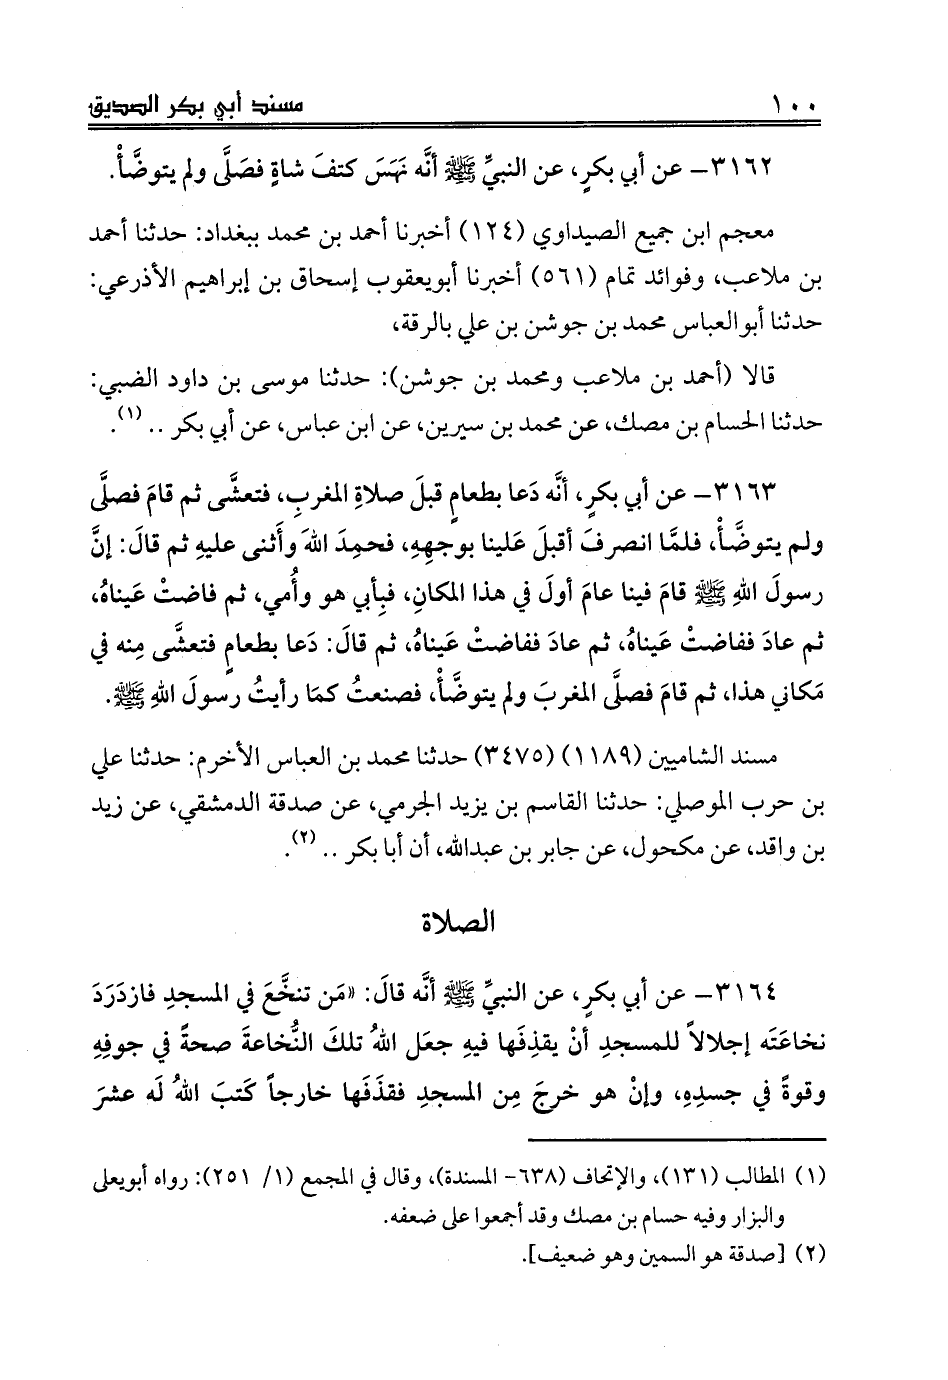 ١٠٠ مسند أبي بكر الصديق
٣١٦٢ – عن أبي بكرٍ، عن النبيِّ ﷺ أنَّه نَهَسَ كتفَ شاةٍ فصَلَّى ولم يتوضَّأْ.
معجم ابن جميع الصيداوي (١٢٤) أخبرنا أحمد بن محمد ببغداد: حدثنا أحمد
بن ملاعب، وفوائد تمام (٥٦١) أخبرنا أبويعقوب إسحاق بن إبراهيم الأذرعي:
حدثنا أبوالعباس محمد بن جوشن بن علي بالرقة،
قالا (أحمد بن ملاعب ومحمد بن جوشن): حدثنا موسى بن داود الضبي:
حدثنا الحسام بن مصك، عن محمد بن سيرين، عن ابن عباس، عن أبي بكر .. (١).
٣١٦٣ – عن أبي بكرٍ، أنَّه دَعا بطعامٍ قبلَ صلاةِ المغربِ، فتعشَّى ثم قامَ فصلَّى
ولم يتوضَّأْ، فلمَّا انصرفَ أقبلَ عَلينا بوجهِهِ، فحمِدَ اللهَ وأَثنى عليهِ ثم قالَ: إنَّ
رسولَ اللهِ ﷺ قامَ فينا عامَ أولَ في هذا المكانِ، فبِأبي هو وأُمي، ثم فاضتْ عَيناهُ،
ثم عادَ ففاضتْ عَيناهُ، ثم عادَ ففاضتْ عَيناهُ، ثم قالَ: دَعا بطعامٍ فتعشَّى مِنه في
مَكاني هذا، ثم قامَ فصلَّى المغربَ ولم يتوضَّأْ، فصنعتُ كمَا رأيتُ رسولَ اللهِ ﷺ.
مسند الشاميين (١١٨٩) (٣٤٧٥) حدثنا محمد بن العباس الأخرم: حدثنا علي
بن حرب الموصلي: حدثنا القاسم بن يزيد الجرمي، عن صدقة الدمشقي، عن زيد
بن واقد، عن مكحول، عن جابر بن عبدالله، أن أبا بكر .. (٢).
الصلاة
٣١٦٤ – عن أبي بكرٍ، عن النبيِّ ﷺ أنَّه قالَ: «مَن تنخَّعَ في المسجدِ فازدَرَدَ
نخاعَتَه إجلالاً للمسجدِ أنْ يقذِفَها فيهِ جعَل اللهُ تلكَ النُّخاعةَ صحةً في جوفِهِ
وقوةً في جسدِهِ، وإنْ هو خرجَ مِن المسجدِ فقذَفَها خارجاً كَتبَ اللهُ لَه عشرَ
(١) المطالب (١٣١)، والإتحاف (٦٣٨- المسندة)، وقال في المجمع (١/ ٢٥١): رواه أبويعلى
والبزار وفيه حسام بن مصك وقد أجمعوا على ضعفه.
(٢) [صدقة هو السمين وهو ضعيف].